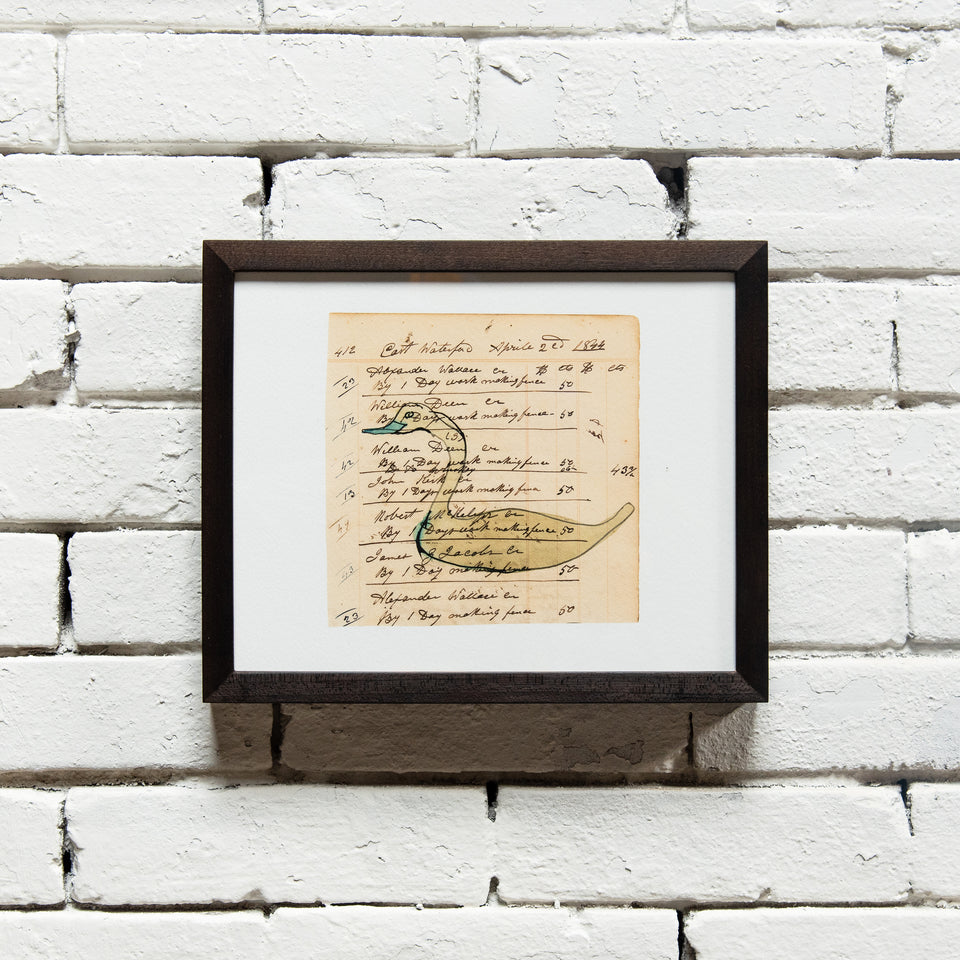 412 East Waterford Aprile 2cd 1844
Alexander Wallace Cr $ cts $ cts
23 By 1 Day work making fence 50
William Deen Cr
42 By 1 Day work making fence - 50
(3)
William Deen Cr
42 By 1 Day work making fence 50
43¾
John Kirk Cr
13 By 1 Days work making fence 50
Robert McKelvy Cr
By 1 Days work making fence 50
James Jacobs Cr
23 By 1 Day making fence 50
Alexander Wallace Cr
23 By 1 Day making fence 50